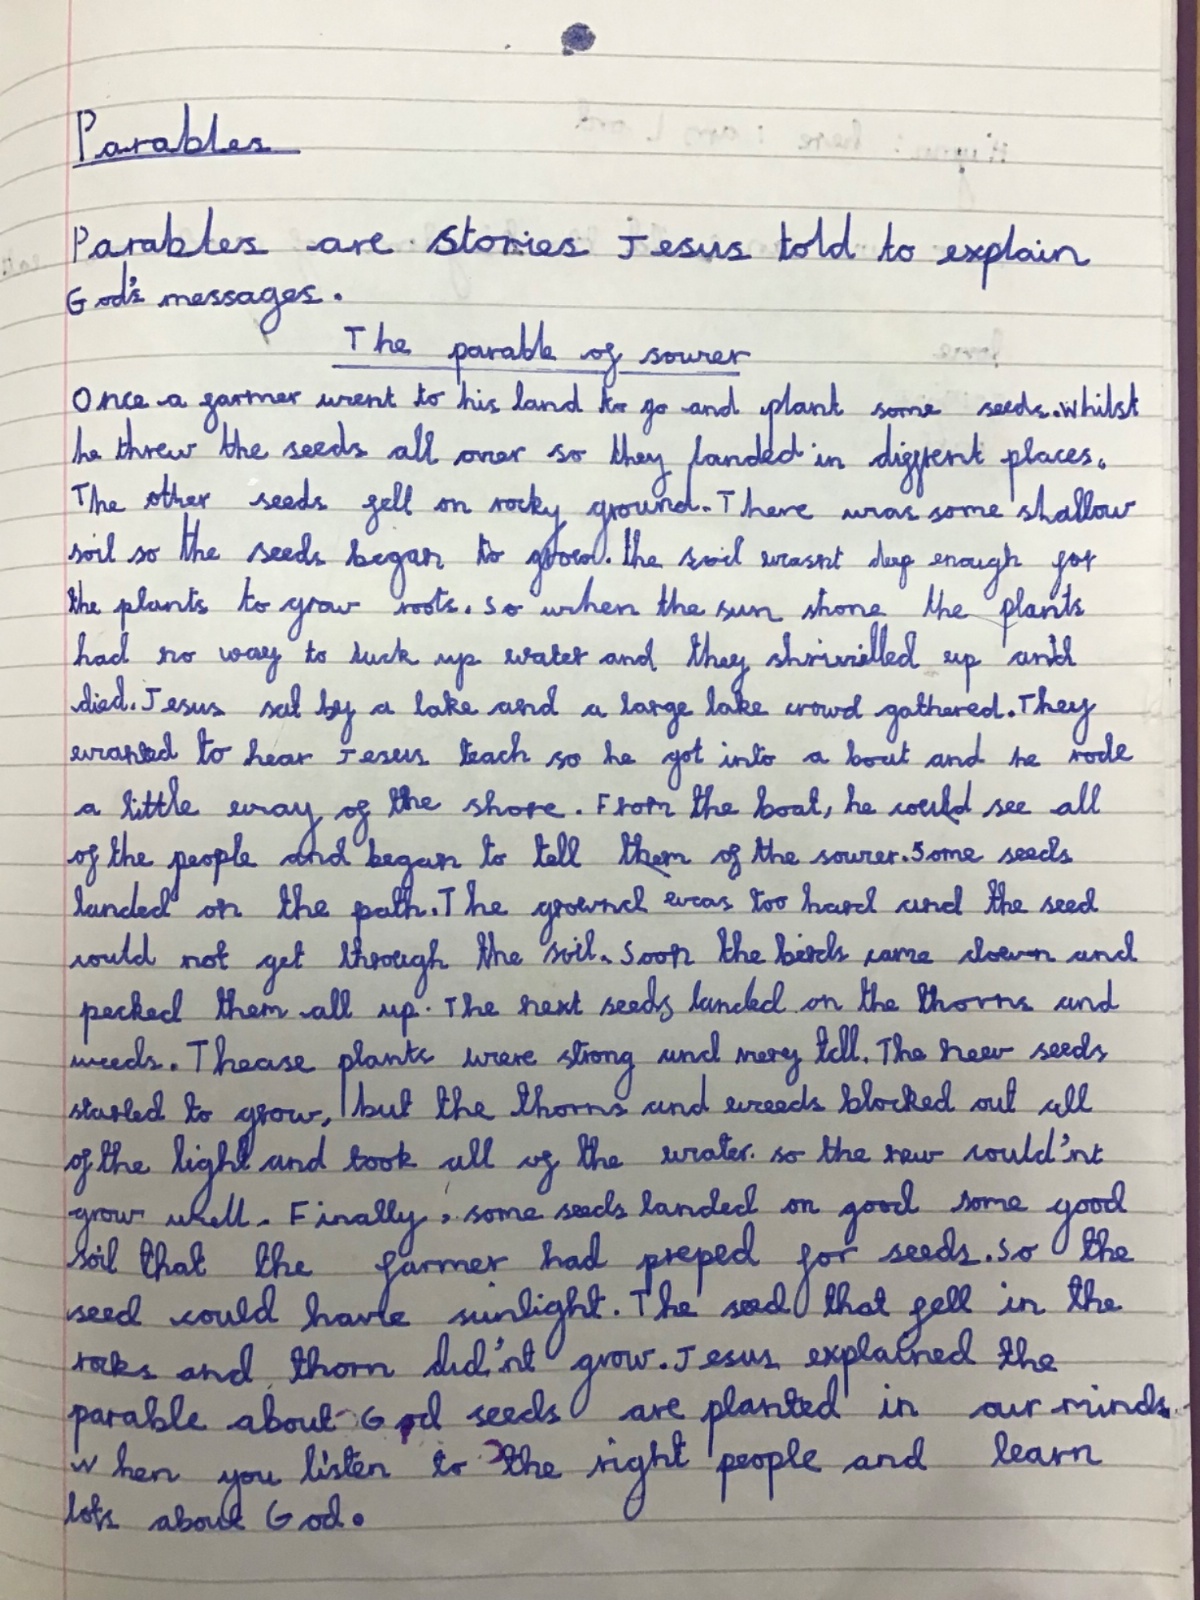 Parables
Parables are stories Jesus told to explain
God's messages.
The parable of sower
Once a farmer went to his land to go and plant some seeds. Whilst
he threw the seeds all over so they landed in diffrent places.
The other seeds fell on rocky ground. There was some shallow
soil so the seeds began to grow. the soil wasnt deep enough for
the plants to grow roots. So when the sun shone the plants
had no way to suck up water and they shrivelled up and
died. Jesus sat by a lake and a large lake crowd gathered. They
wanted to hear Jesus teach so he got into a boat and he rode
a little way of the shore. From the boat, he could see all
of the people and began to tell them of the sower. Some seeds
landed on the path. The grownd was too hard and the seed
could not get through the soil. Soon the birds came down and
pecked them all up. The next seeds landed on the thorns and
weeds. Thease plants were strong and very tall. The new seeds
started to grow, but the thorns and weeds blocked out all
of the light and took all of the water. so the new could'nt
grow well. Finally, some seeds landed on good some good
soil that the farmer had preped for seeds. So the
seed could have sunlight. The seed that fell in the
rocks and thorn did'nt grow. Jesus explained the
parable about God seeds are planted in our minds.
When you listen to the right people and learn
lots about God.